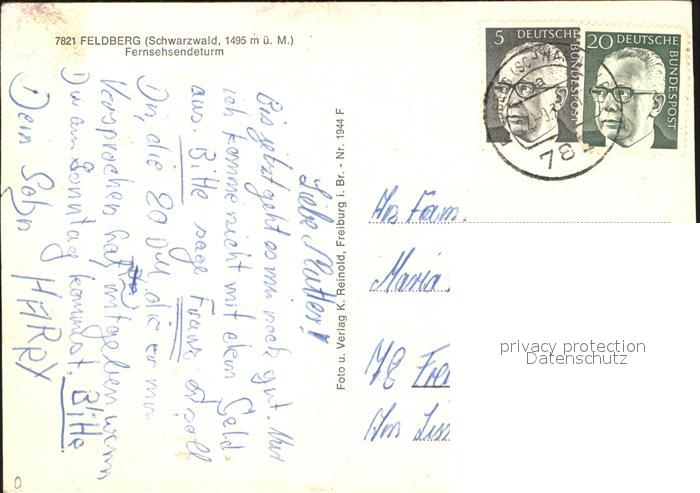 7821 FELDBERG (Schwarzwald, 1495 m ü. M.)
Fernsehsendeturm
5 DEUTSCHE BUNDESPOST
20 DEUTSCHE BUNDESPOST
78
a
Liebe Mutter!
Bis jetzt geht es mir noch gut. Nur
ich komme nicht mit dem Geld
aus. Bitte sage Franz er soll
Dir, die 20 DM die er mir
Versprochen hat, mitgeben wenn
Du am Sonntag kommst. Bitte
Dein Sohn HARRY
Foto u. Verlag K. Reinold, Freiburg i. Br. - Nr. 1944 F
An Fam.
Maria
78
privacy protection
Datenschutz